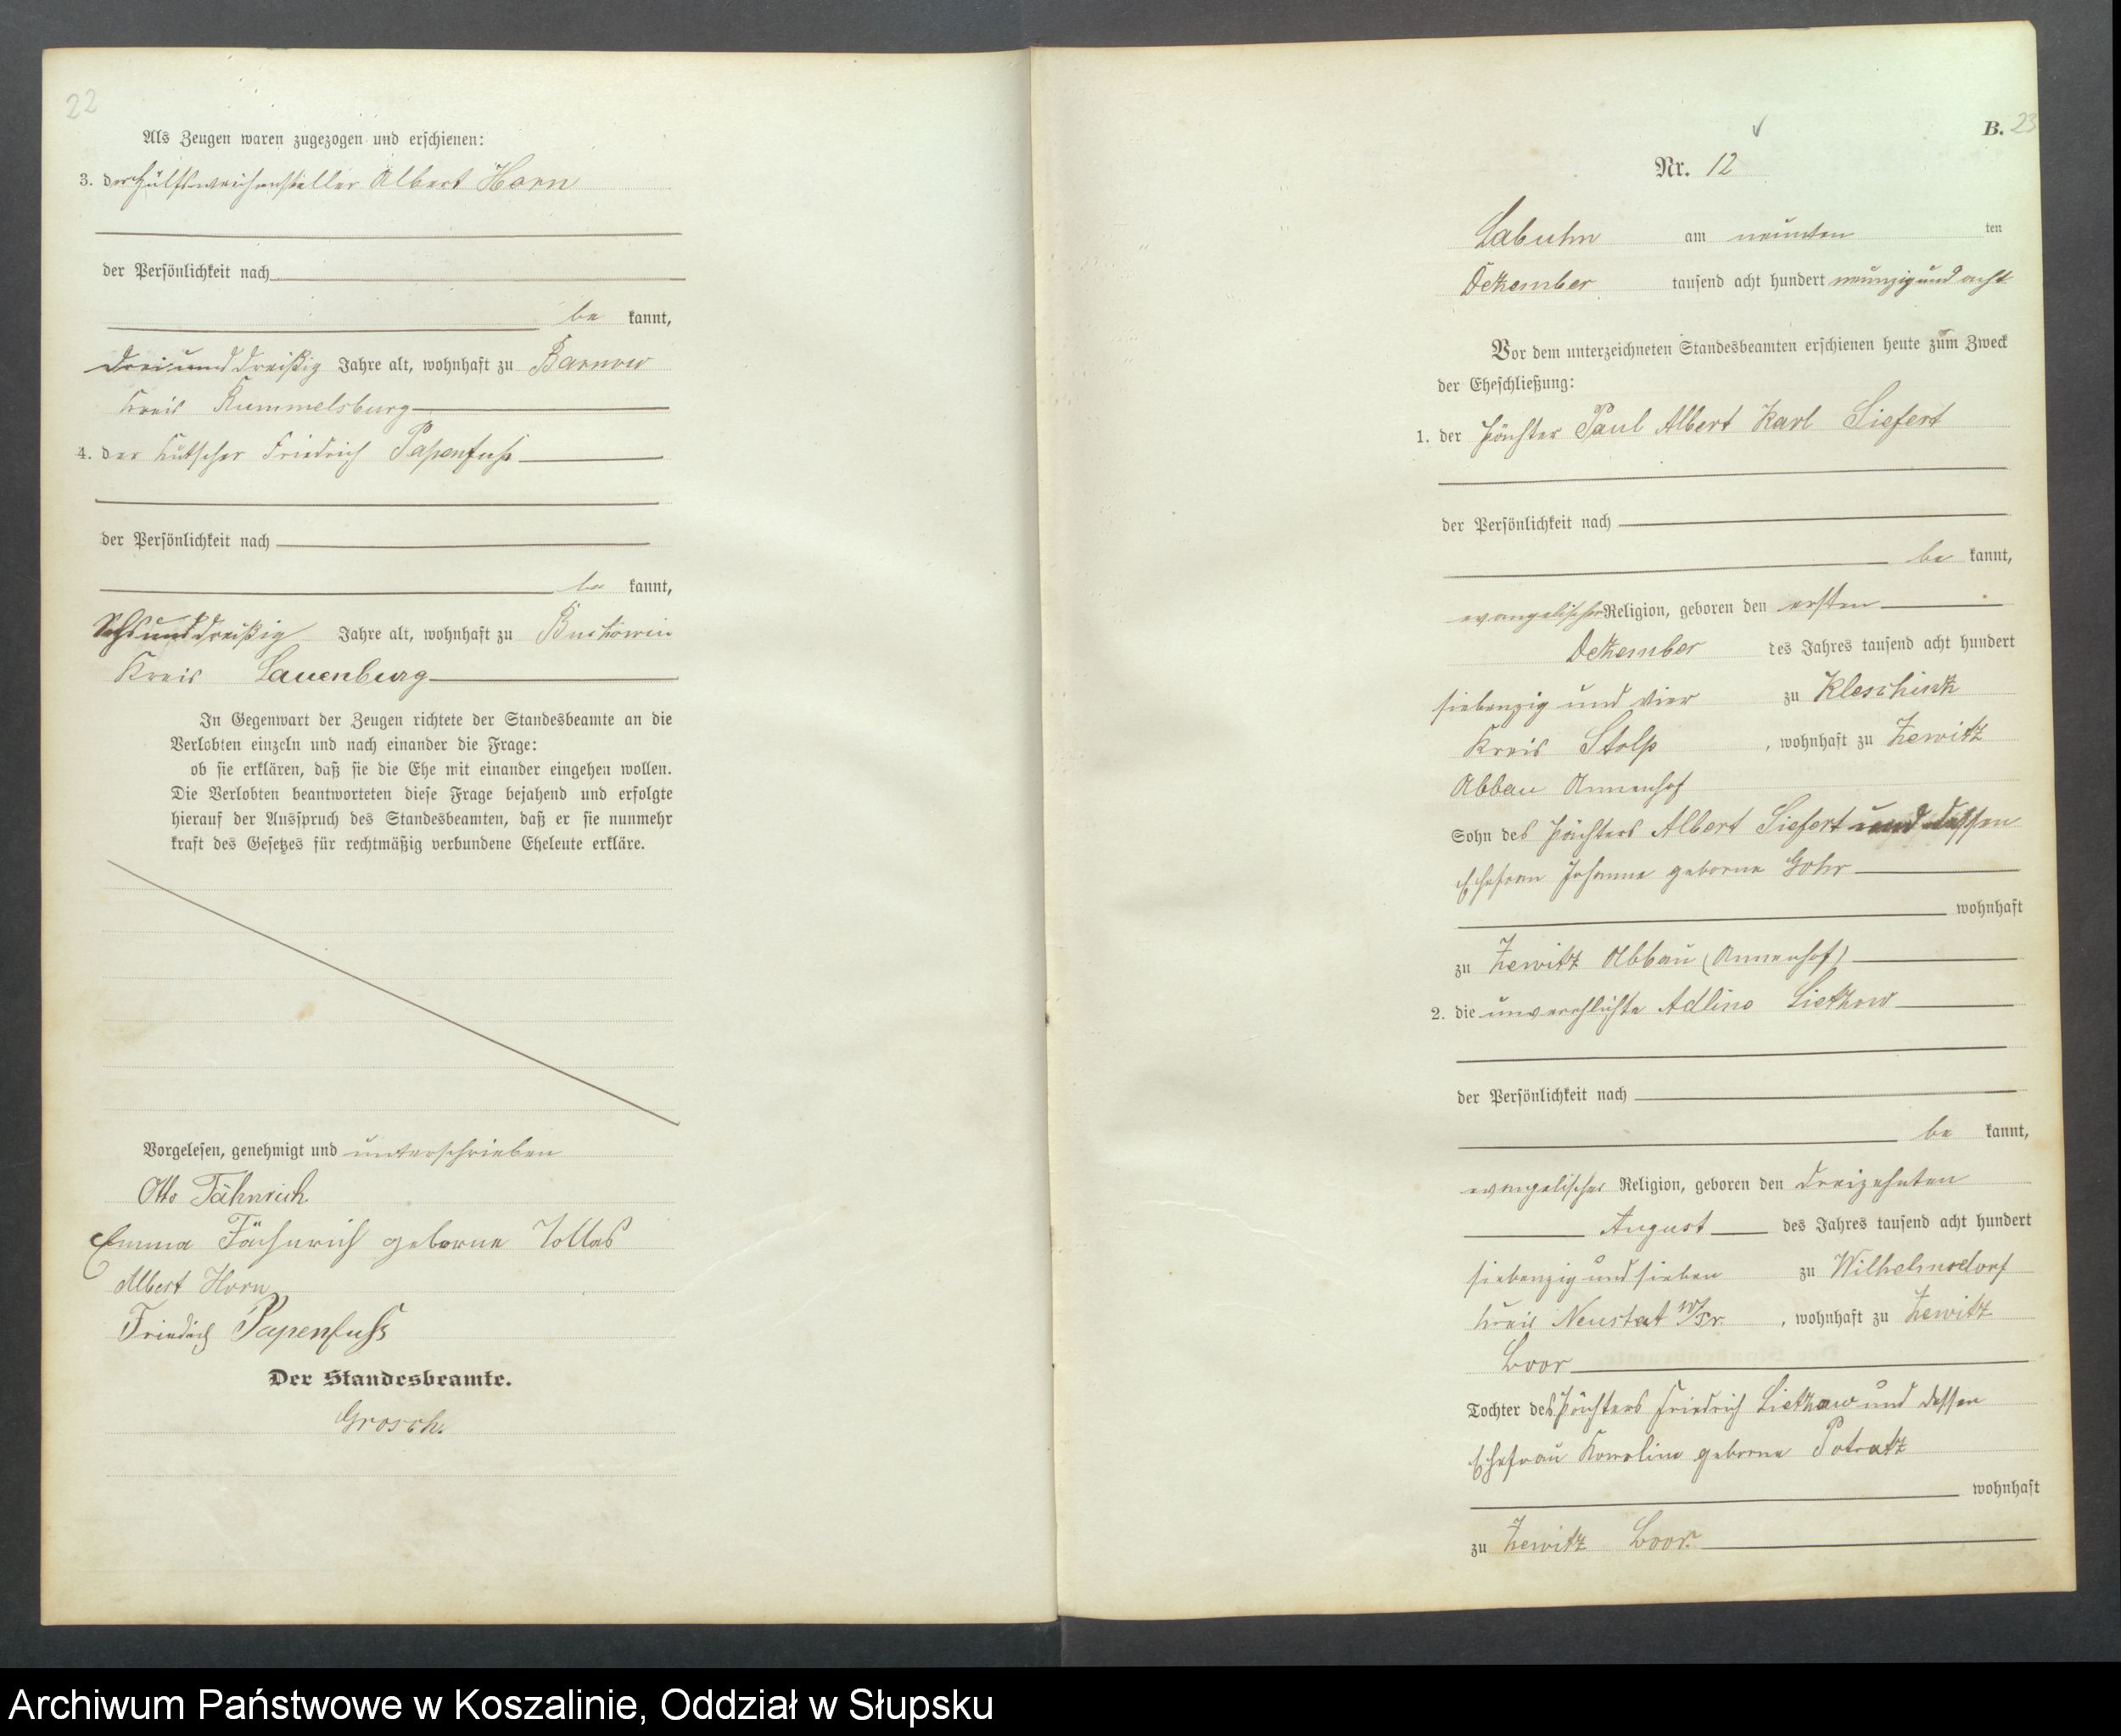 22
Als Zeugen waren zugezogen und erschienen:
3. der Hülfsweichensteller Albert Horn
der Persönlichkeit nach
be kannt,
drei und dreißig Jahre alt, wohnhaft zu Barnow
Kreis Rummelsburg
4. der Kutscher Friedrich Papenfuß
der Persönlichkeit nach
be kannt,
Sechs und dreißig Jahre alt, wohnhaft zu Buckowin
Kreis Lauenburg
In Gegenwart der Zeugen richtete der Standesbeamte an die
Verlobten einzeln und nach einander die Frage:
ob sie erklären, daß sie die Ehe mit einander eingehen wollen.
Die Verlobten beantworteten diese Frage bejahend und erfolgte
hierauf der Ausspruch des Standesbeamten, daß er sie nunmehr
kraft des Gesetzes für rechtmäßig verbundene Eheleute erkläre.
Vorgelesen, genehmigt und unterschrieben
Otto Fähnrich
Emma Fähnrich geborne
Albert Horn
Friedrich Papenfuß
Der Standesbeamte.
Grosch.
B. 23
Nr. 12
Labuhn am neunten ten
Dezember tausend acht hundert neunzig und acht
Vor dem unterzeichneten Standesbeamten erschienen heute zum Zweck
der Eheschließung:
1. der Pächter Paul Albert Karl Siefert
der Persönlichkeit nach
be kannt,
evangelischer Religion, geboren den ersten
Dezember des Jahres tausend acht hundert
siebenzig und vier zu Kleschinz
Kreis Stolp, wohnhaft zu Zewitz
Abbau Annenhof
Sohn des Pächters Albert Siefert und dessen
Ehefrau Johanna geborne Gohr
wohnhaft
zu Zewitz Abbau (Annenhof)
2. die unverehlichte Adline Lietzow
der Persönlichkeit nach
be kannt,
evangelischer Religion, geboren den dreizehnten
August des Jahres tausend acht hundert
siebenzig und sieben zu Wilhelmsdorf
Kreis Neustat W/Pr., wohnhaft zu Zewitz
Loor
Tochter des Pächters Friedrich Lietzow und dessen
Ehefrau Karoline geborne Potratz
wohnhaft
zu Zewitz Loor.
Archiwum Państwowe w Koszalinie, Oddział w Słupsku